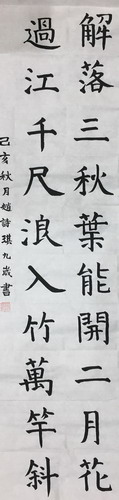 解落三秋葉能開二月花
過江千尺浪入竹萬竿斜
己亥秋月趙詩琪九歲書